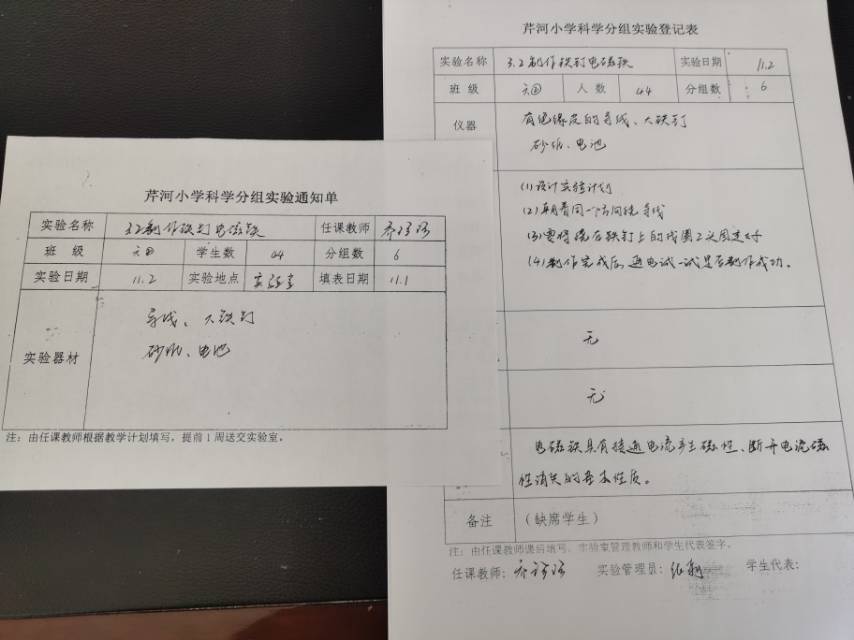 芹河小学科学分组实验通知单
实验名称 3.2制作铁钉电磁铁 任课教师
班级 六四 学生数 44 分组数 6
实验日期 11.2 实验地点 实验室 填表日期 11.1
实验器材
导线、大铁钉
砂纸、电池
注：由任课教师根据教学计划填写，提前1周送交实验室。
芹河小学科学分组实验登记表
实验名称 3.2制作铁钉电磁铁 实验日期 11.2
班级 六四 人数 44 分组数 6
仪器
有绝缘皮的导线、大铁钉
砂纸、电池
(1)设计实验计划
(2)朝着同一方向绕导线
(3)要将绕在铁钉上的线圈2头固定好
(4)制作完成后，通电试一试是否制作成功。
无
无
电磁铁具有接通电流产生磁性、断开电流磁
性消失的基本性质。
备注 (缺席学生)
注：由任课教师课后填写，实验室管理教师和学生代表签字。
任课教师： 实验管理员： 学生代表：